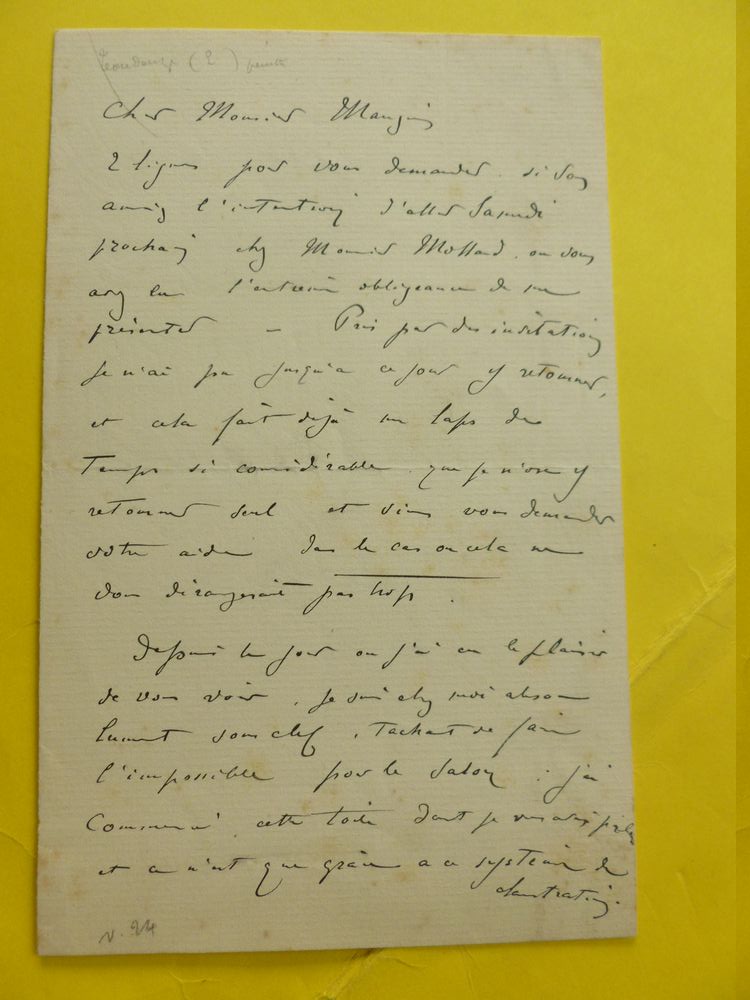 (2) peintre
Cher Monsieur Mangin
2 lignes pour vous demander si vous
aviez l'intention d'aller Samedi
prochain chez Monsieur Mollard ou vous
avez eu l'extreme obligeance de me
présenter — Pris par des invitations
je n'ai pu jusqu'a ce jour y retourner,
et cela fait déjà un laps de
Temps si considérable que je n'ose y
retourner seul et viens vous demander
votre aide dans le cas ou cela ne
vous dérangerait pas trop.
Depuis le jour ou j'ai eu le plaisir
de vous voir, je suis chez moi abso
lument sous clef, tachant de faire
l'impossible pour le Salon ; j'ai
commencé cette toile dont je vous avais parlé
et ce n'est que grâce a ce système de
claustration.
v. 94